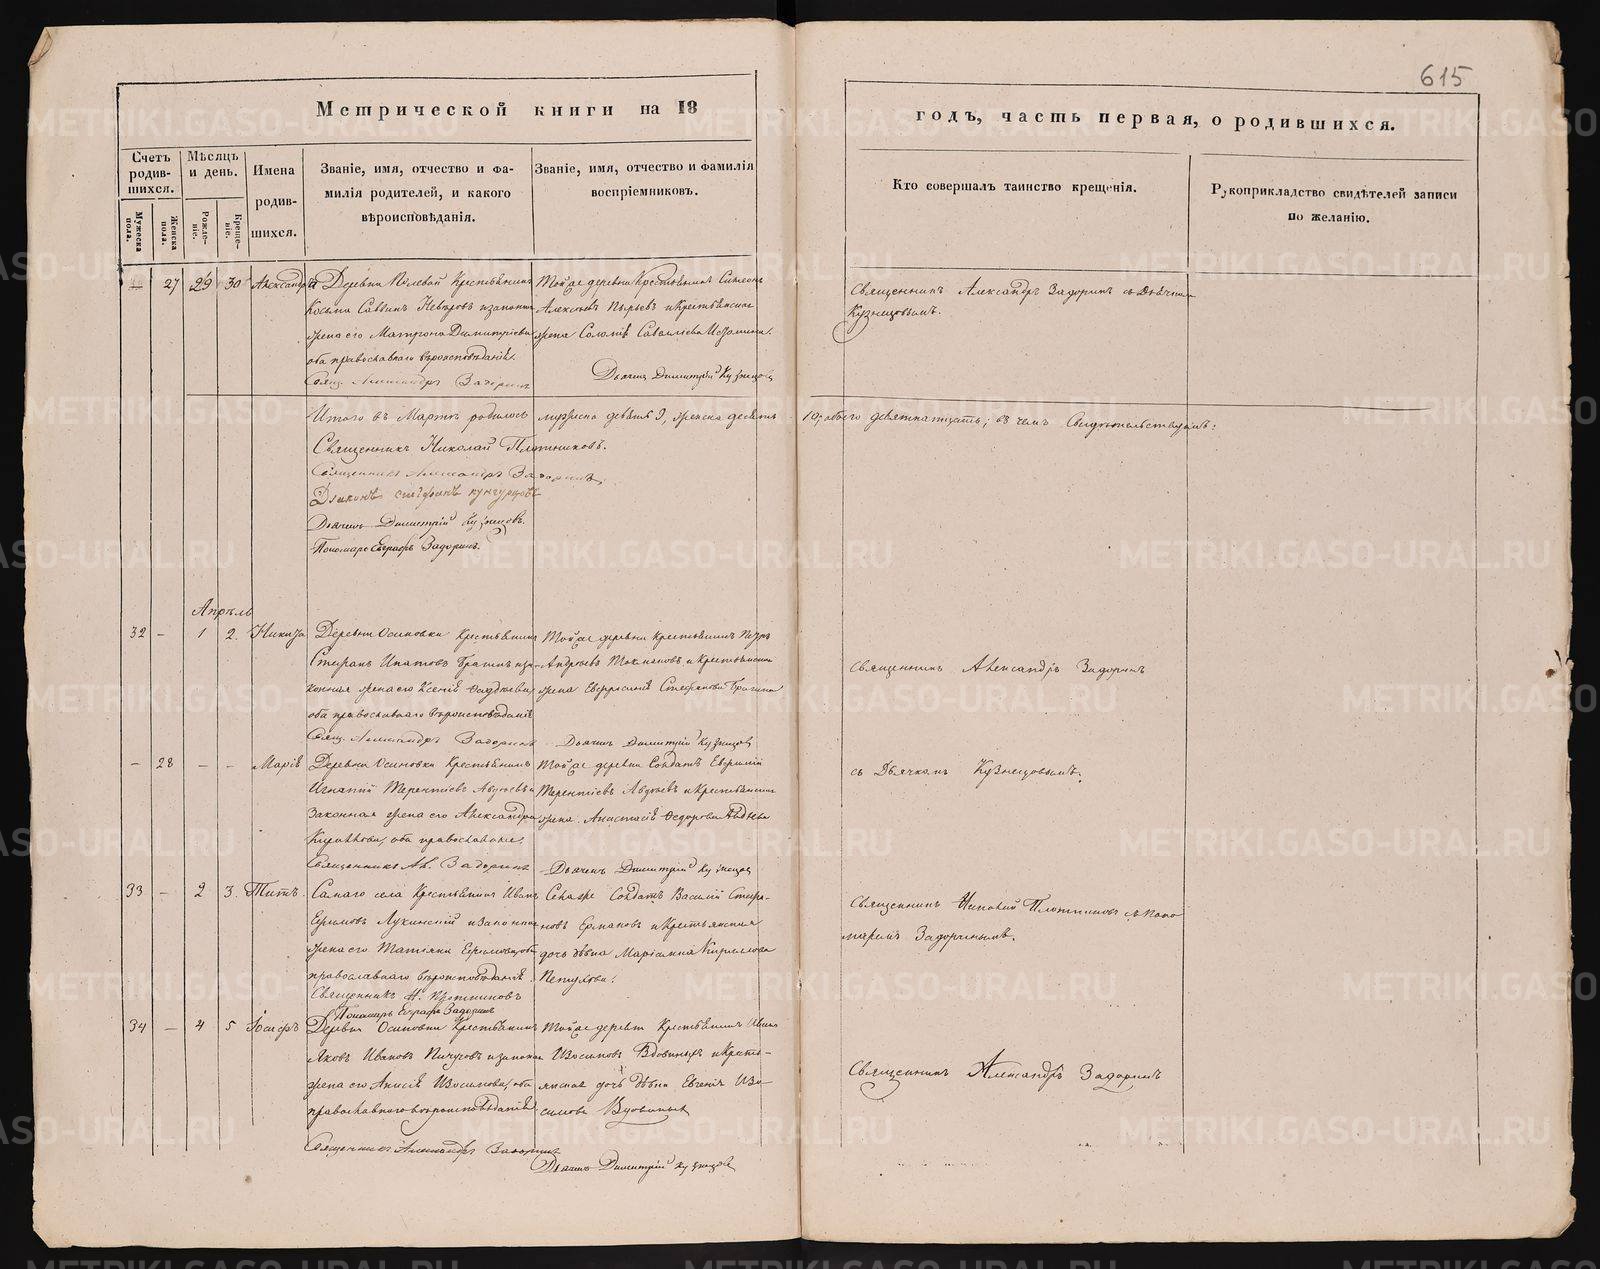 615
Метрической книги на 18
годъ, часть первая, о родившихся.
Счетъ родив-шихся.
Мужеска пола.
Женска пола.
Мѣсяцъ и день.
Рожде-ніе.
Креще-ніе.
Имена родив-шихся.
Званіе, имя, отчество и фа-
милія родителей, и какого
вѣроисповѣданія.
Званіе, имя, отчество и фамилія
воспріемниковъ.
Кто совершалъ таинство крещенія.
Рукоприкладство свидѣтелей записи
по желанію.
27 29 30 Александра
Деревни Полевой Крестьянинъ
Косьма Саввинъ и законная
жена его Матрона Димитріева
оба православнаго вѣроисповѣданія.
Свящ. Александръ Задоринъ
Тойже деревни Крестьянинъ Симеонъ
Алексѣевъ Пырьевъ и Крестьянская
жена Соломія Савельева
Дьячекъ Димитрій Кузнецовъ
Священникъ Александръ Задоринъ съ Дьячкомъ
Кузнецовымъ.
Итого въ Мартѣ родилось мужеска девять 9, женска десять
10, обоего девятнатцать; въ чемъ Свидѣтельствуемъ:
Священникъ Николай Плотниковъ.
Священникъ Александръ Задоринъ,
Діаконъ Стефанъ Кунгурцовъ
Дьячекъ Димитрій Кузнецовъ.
Пономарь Евграфъ Задоринъ.
Апрѣль
32 – 1 2 Никита
Деревни Осиновки Крестьянинъ
Стефанъ Ипатовъ Брагинъ и за-
конная жена его Ксенія
оба православнаго вѣроисповѣданія
Свящ. Александръ Задоринъ
Тойже деревни Крестьянинъ Петръ
Андреевъ Токмаковъ и Крестьянская
жена Евфросинія Стефанова Брагина
Дьячекъ Димитрій Кузнецовъ
Священникъ Александръ Задоринъ
– 28 – – Марія
Деревни Осиновки Крестьянинъ
Игнатій Терентіевъ Авдѣевъ и
Законная жена его Александра
оба православные.
Священникъ Ал. Задоринъ
Тойже деревни Солдатъ Евфимій
Терентіевъ Авдѣевъ и Крестьянская
жена Анастасія Ѳедорова Авдѣева
Дьячекъ Димитрій Кузнецовъ
съ Дьячкомъ Кузнецовымъ.
33 – 2 3 Титъ.
Самаго села Крестьянинъ Иванъ
Ефимовъ Лукинскій и законная
жена его Татіяна оба
православнаго вѣроисповѣданія.
Священникъ Н. Плотниковъ
Пономарь Евграфъ Задоринъ
Села же Солдатъ Василій Стефа-
новъ Ермаковъ и Крестьянская
дочь дѣвка Маріамна Кириллова
Священникъ Николай Плотниковъ съ Поно
маремъ Задоринымъ.
34 – 4 5 Іосифъ
Деревни Осиновки Крестьянинъ
Яковъ Ивановъ Пичуговъ и законная
жена его Анисія Изосимова, оба
православнаго вѣроисповѣданія.
Священникъ Александръ Задоринъ
Тойже деревни Крестьянинъ Иванъ
Изосимовъ Вдовиныхъ и Кресть-
янская дочь дѣвка Евгенія Изо-
симова Вдовиныхъ
Дьячекъ Димитрій Кузнецовъ
Священникъ Александръ Задоринъ
METRIKI.GASO-URAL.RU